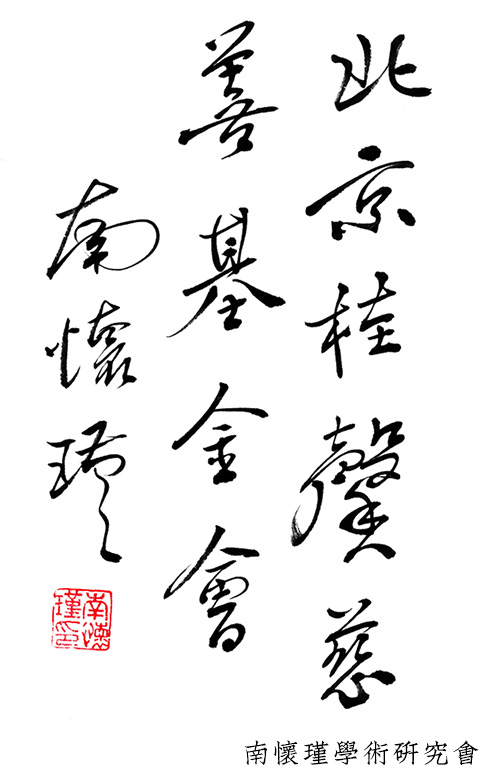 北京桂馨慈
善基金會
南懷瑾
南懷瑾印
南懷瑾學術研究會